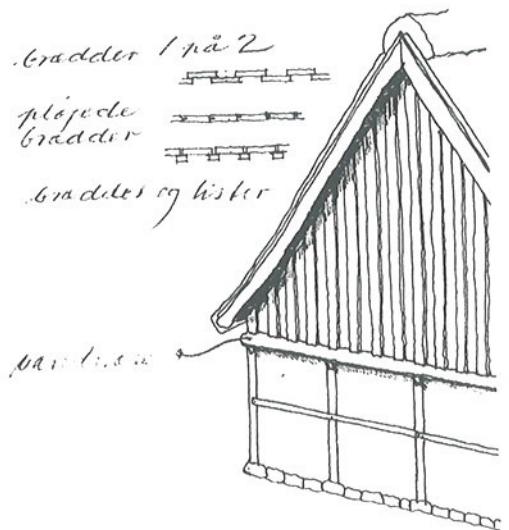 brædder 1 på 2
pløjede
brædder
brædder og lister